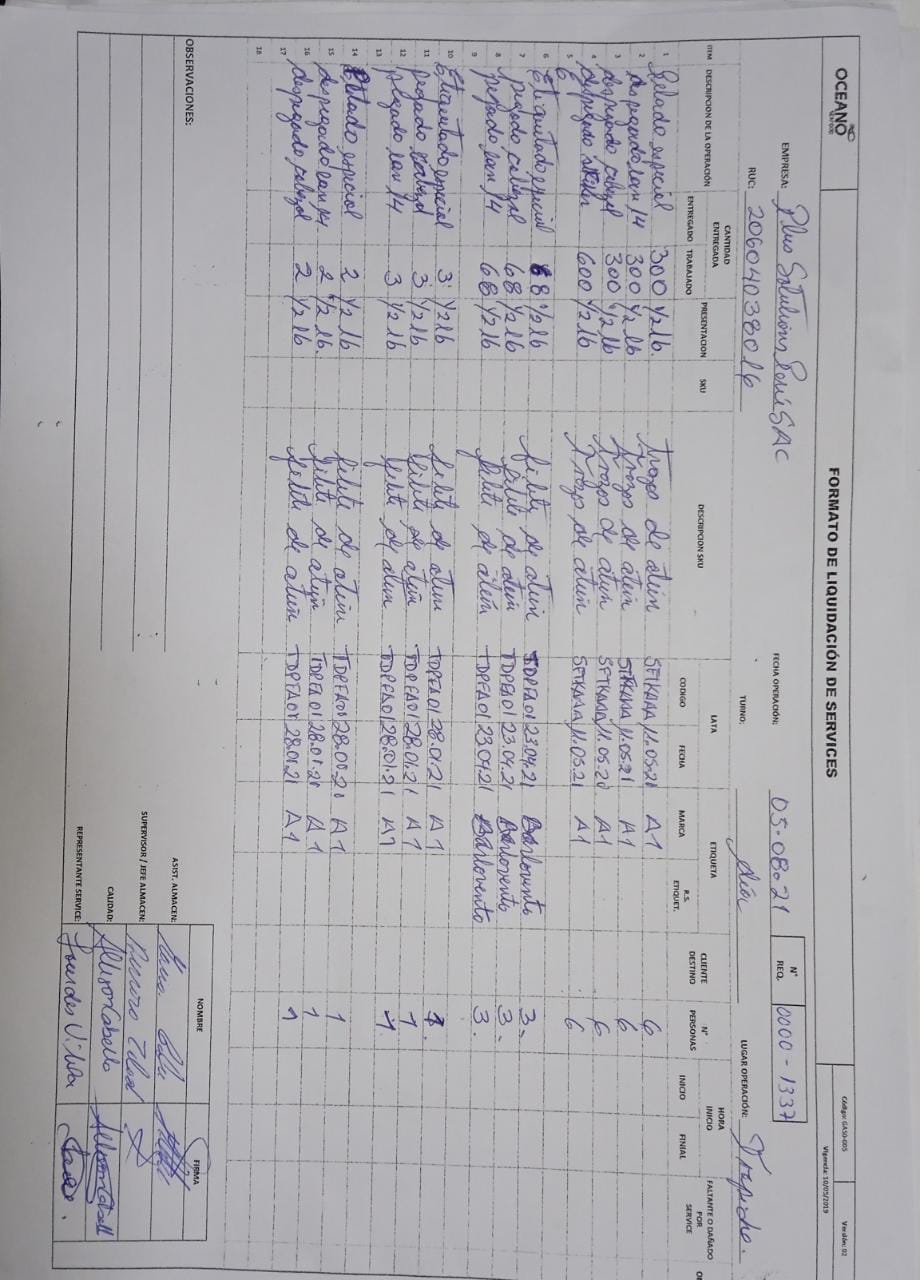 OCEANO
SEAFOOD
FORMATO DE LIQUIDACIÓN DE SERVICES
Código: GAS0-005
Versión: 02
Vigencia: 10/05/2019
EMPRESA: Plus Solutions Perú SAC
FECHA OPERACIÓN: 05.08.21
N° REQ. 0000-1337
RUC: 20604038016
TURNO: día
LUGAR OPERACIÓN:
ITEM DESCRIPCION DE LA OPERACIÓN CANTIDAD ENTREGADA ENTREGADO TRABAJADO PRESENTACION SKU DESCRIPCION SKU LATA CODIGO FECHA ETIQUETA MARCA R.S. ETIQUET. CLIENTE DESTINO N° PERSONAS HORA INICIO INICIO FINIAL FALTANTE O DAÑADO POR SERVICE
1 especial 300 1/2 lb. trozo de atún 11.05.21 A1 6
2 despegado 300 1/2 lb trozo de atún 11.05.21 A1 6
3 despegado cabezal 300 1/2 lb trozo de atún 11.05.21 A1 6
4 despegado 600 1/2 lb trozo de atún 11.05.21 A1 6
5
6 Etiquetado especial 68 1/2 lb filete de atún TDPFA01 23.04.21 Barlovento 3
7 pegado cabezal 68 1/2 lb filete de atún TDPFA01 23.04.21 Barlovento 3
8 pegado 68 1/2 lb filete de atún TDPFA01 23.04.21 Barlovento 3.
9
10 Etiquetado especial 3 1/2 lb filete de atún TDPFA01 28.01.21 A1 1.
11 pegado cabezal 3 1/2 lb filete de atún TDPFA01 28.01.21 A1 1
12 pegado 3 1/2 lb filete de atún TDPFA01 28.01.21 A1 1
13
14 especial 2 1/2 lb filete de atún TDPFA01 28.01.21 A1 1
15 despegado 2 1/2 lb. filete de atún TDPFA01 28.01.21 A1 1
16 despegado cabezal 2 1/2 lb filete de atún TDPFA01 28.01.21 A1 1
17
18
OBSERVACIONES:
NOMBRE FIRMA
ASIST. ALMACEN:
SUPERVISOR / JEFE ALMACEN:
CALIDAD: Allison Cabello
REPRESENTANTE SERVICE: Lourdes